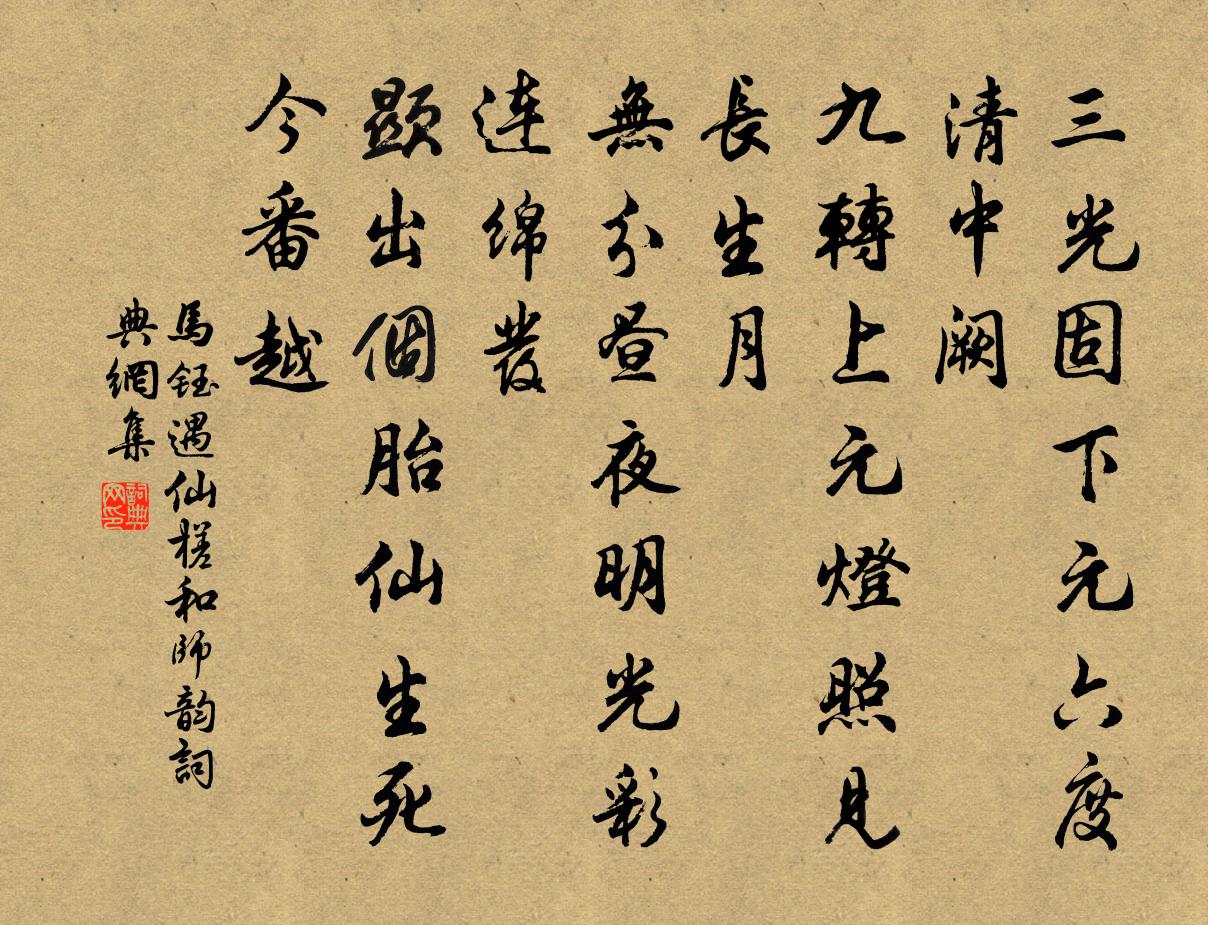 三光固下元六度
清中阙
九轉上元燈照見
長生月
無分昼夜明光彩
连绵發
顯出個胎仙生死
今番越
馬鈺遇仙槎和師韵詞
典網集
詞典
网印